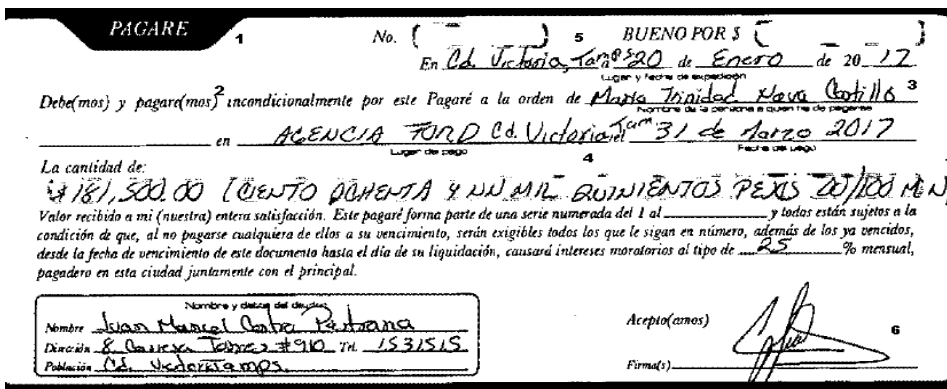 PAGARE 1 No. ( ) 5 BUENO POR $ [ ]
En Cd. Victoria, Tamps 20 de Enero de 20 17
Lugar y fecha de expedición
Debe(mos) y pagare(mos) 2 incondicionalmente por este Pagaré a la orden de Maria Trinidad Nava Castillo 3
Nombre de la persona a quien ha de pagarse
en AGENCIA FORD Cd. Victoria Tam el 31 de Marzo 2017
Lugar de pago Fecha de pago
La cantidad de: 4
$181,500.00 (CIENTO OCHENTA Y UN MIL QUINIENTOS PESOS 00/100 M N
Valor recibido a mi (nuestra) entera satisfacción. Este pagaré forma parte de una serie numerada del 1 al y todos están sujetos a la
condición de que, al no pagarse cualquiera de ellos a su vencimiento, serán exigibles todos los que le sigan en número, además de los ya vencidos,
desde la fecha de vencimiento de este documento hasta el día de su liquidación, causará intereses moratorios al tipo de 25 % mensual,
pagadero en esta ciudad juntamente con el principal.
Nombre y datos del deudor
Nombre Juan Manuel
Dirección 8 Carrera Torres #910 Tel. 1531515
Población Cd. Victoria Tamps.
Acepto(amos) 6
Firma(s)